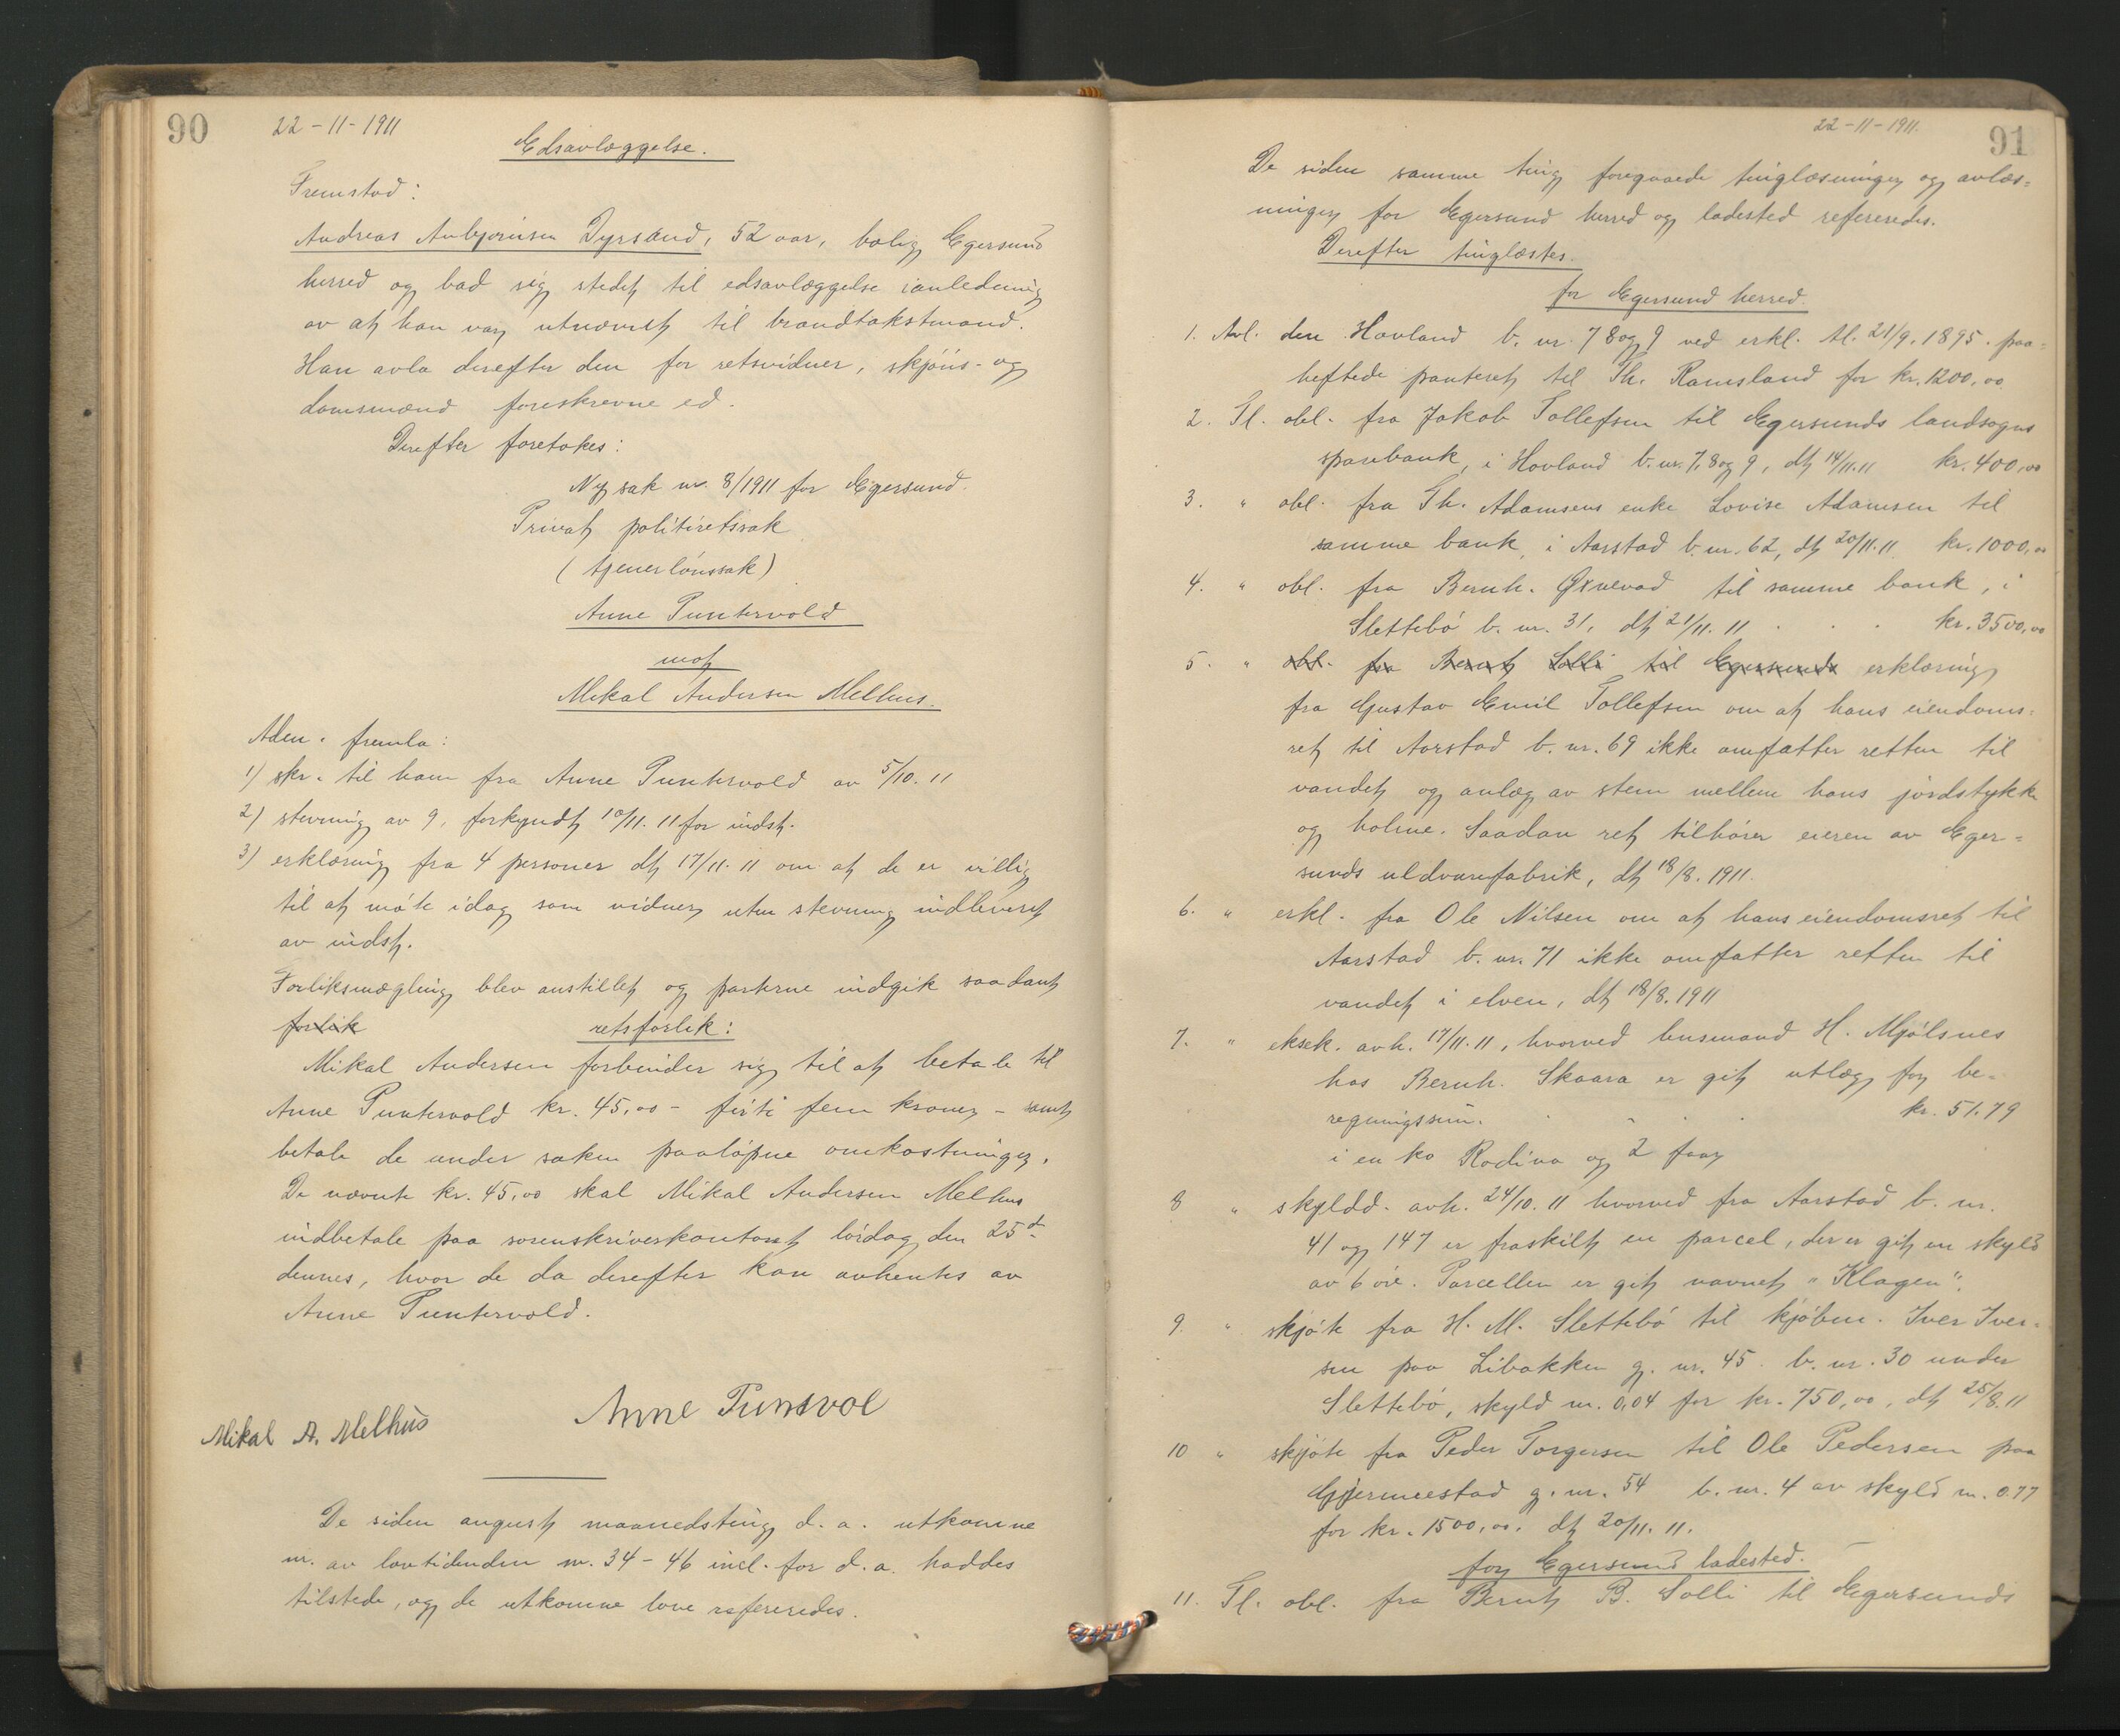 90
22-11-1911
Edsavlæggelse.
Fremstod:
Andreas Anbjørnsen Dyrsand, 52 aar, bolig Egersund
herred og bad sig stedet til edsavlæggelse ianledning
av at han var utnævnt til brandtakstmand.
Han avla derefter den for retsvidner, skjøns- og
domsmænd foreskrevne ed.
Derefter foretokes:
Ny sak nr. 8/1911 for Egersund.
Privat politiretssak
(tjenerlønssak)
Anne Puntervold
mot
Mikal Andersen Melhus.
Adm. fremla:
1) skr. til ham fra Anne Puntervold av 5/10. 11
2) stevning av 9, forkyndt 10/11. 11 for indst.
3) erklæring fra 4 personer dt 17/11. 11 om at de er villig
til at møte idag som vidner uten stevning indleveret
av indst.
Forliksmægling blev anstillet og parterne indgik saadant
forlik retsforlik:
Mikal Andersen forbinder sig til at betale til
Anne Puntervold kr. 45,00 - førti fem kroner - samt
betale de under saken paaløpne omkostninger.
De nævnte kr. 45,00 skal Mikal Andersen Melhus
indbetale paa sorenskriverkontoret lørdag den 25d
dennes, hvor de da derefter kan avhentes av
Anne Puntervold.
Anne Punsvol
Mikal A. Melhus
De siden august maanedsting d. a. utkomne
nr. av lovtidenden nr. 34 - 46 incl. for d. a. haddes
tilstede, og de utkomne love refereredes.
22-11-1911.
91
De siden samme ting foregaaede tinglæsninger og avlæs=
ninger for Egersund herred og ladested refereredes.
Derefter tinglæstes.
for Egersund herred.
1. Avl. den Hovland b. nr. 7 8 og 9 ved erkl. tl. 21/9. 1895. paa=
heftede panteret til Th. Ramsland for kr. 1200,00
2. Tl. obl. fra Jakob Tollefsen til Egersunds landsogns
sparebank, i Hovland b. nr. 7, 8 og 9, dt 14/11.11 kr. 400,00
3. " obl. fra Th. Adamsens enke Lovise Adamsen til
samme bank, i Aarstad b. nr. 62, dt 20/11. 11. kr. 1000,00
4. " obl. fra Bernh. Øxnevad til samme bank, i
Slettebø b. nr. 31, dt 21/11. 11 . . . kr. 3500,00
5. " obl. fra Bernt Solli til Egersunds erklæring
fra Gustav Emil Tollefsen om at hans eiendoms=
ret til Aarstad b. nr. 69 ikke omfatter retten til
vandet og anlæg av stem mellem hans jordstykke
og holme. Saadan ret tilhører eieren av Eger=
sunds uldvarefabrik, dt 18/8. 1911.
6. " erkl. fra Ole Nilsen om at hans eiendomsret til
Aarstad b. nr. 71 ikke omfatter retten til
vandet i elven, dt 18/8. 1911
7. " eksek. avh. 17/11. 11, hvorved husmand H. Mjølsnes
hos Bernh. Skaara er git utlæg for be-
regningssum. . . . kr. 51.79
i en ko Rodina og 2 faar
8 " skyldd. avh. 24/10. 11 hvorved fra Aarstad b. nr.
41 og 147 er fraskilt en parcel, der er git en skyld
av 6 øre. Parcellen er git navnet "Klagen".
9. " skjøte fra H. M. Slettebø til kjøbm. Iver Iver-
sen paa Libakken g. nr. 45 b. nr. 30 under
Slettebø, skyld m. 0,04 for kr. 750,00, dt 25/8. 11
10 " skjøte fra Peder Torgersen til Ole Pedersen paa
Gjermestad g. nr. 54 b. nr. 4 av skyld m. 0.77
for kr. 1500,00. dt 20/11. 11.
for Egersund ladested.
11. Tl. obl. fra Bernt B. Solli til Egersunds